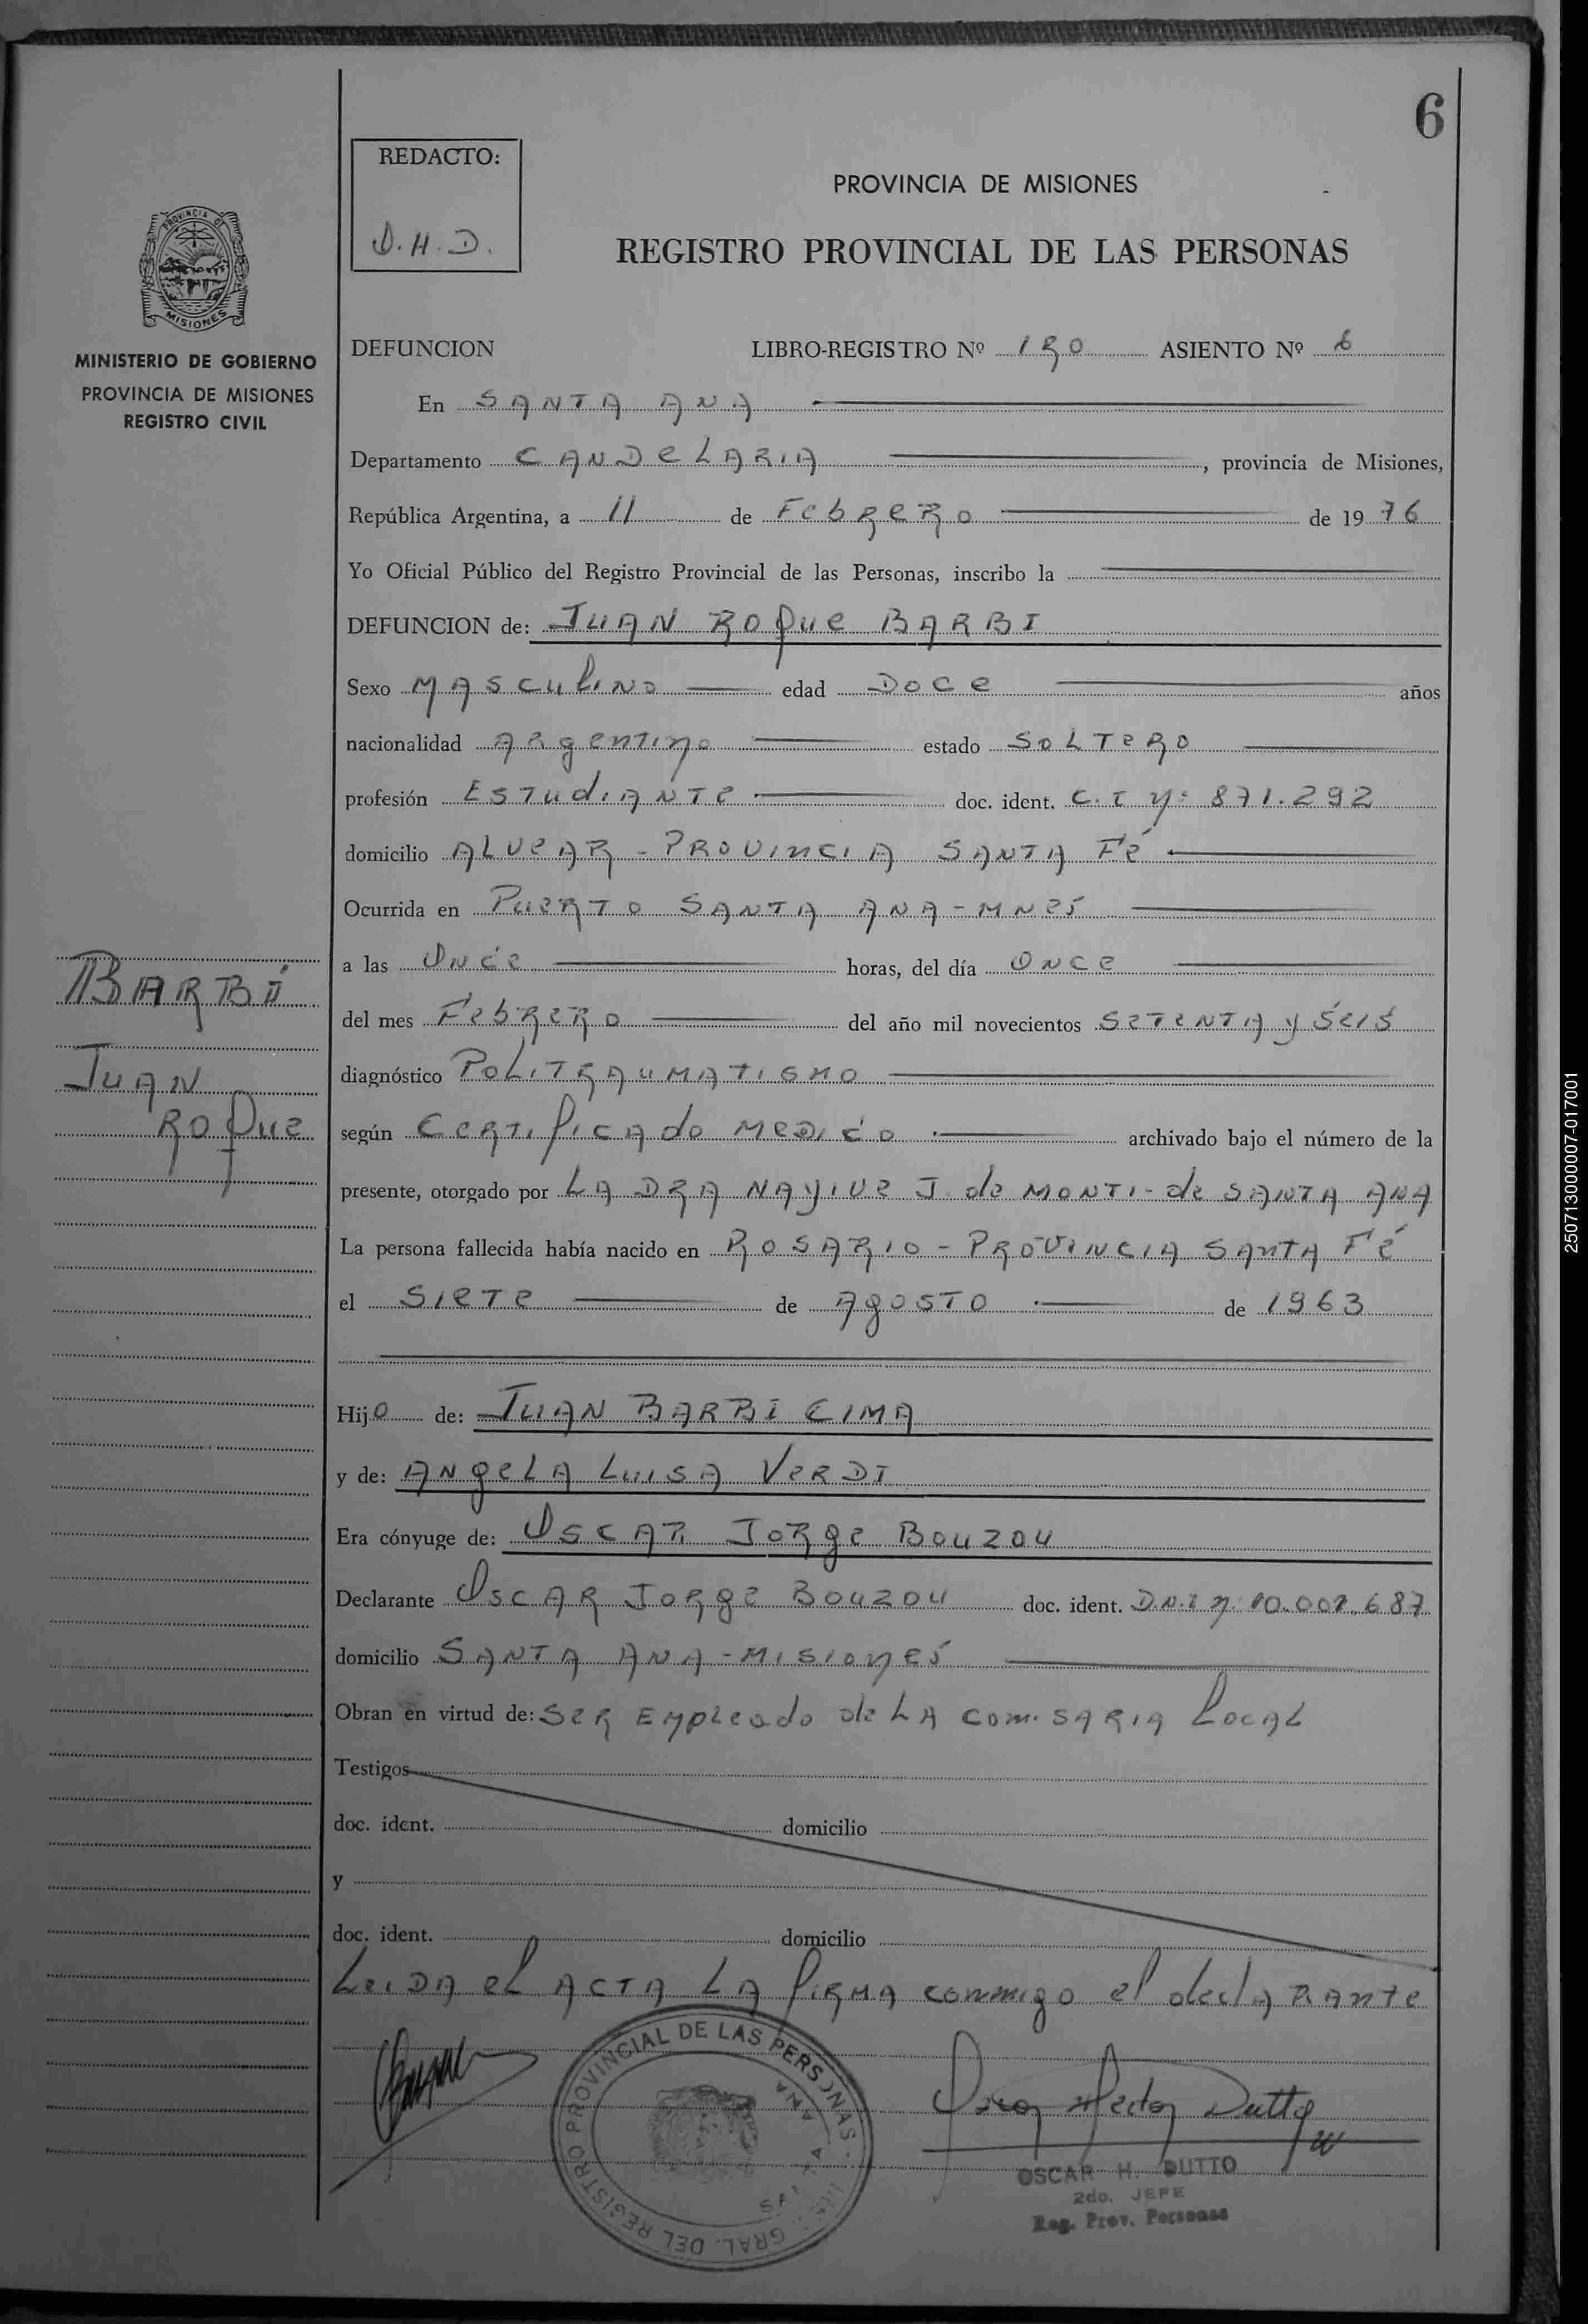 6
REDACTO:
O.H.D.
PROVINCIA DE MISIONES
REGISTRO PROVINCIAL DE LAS PERSONAS
PROVINCIA DE
MISIONES
MINISTERIO DE GOBIERNO
PROVINCIA DE MISIONES
REGISTRO CIVIL
DEFUNCION LIBRO-REGISTRO Nº 190 ASIENTO Nº 6
En SANTA ANA
Departamento CANDeLARIA, provincia de Misiones,
República Argentina, a 11 de FebReRo de 1976
Yo Oficial Público del Registro Provincial de las Personas, inscribo la
DEFUNCION de: JUAN ROque BARBI
Sexo MAScuLiNo edad Doce años
nacionalidad ARgentino estado SOLTeRO
profesión ESTudiANTe doc. ident. C.I Nº 871.292
domicilio ALVeAR - PROVINCIA SANTA Fé
Ocurrida en PueRTO SANTA ANA - MNES
a las Once horas, del día ONCe
del mes FebReRo del año mil novecientos SeTeNTA y SeIS
diagnóstico PoLiTRAuMATISMO
según CeRTificAdo MeDico archivado bajo el número de la
presente, otorgado por LA DRA NAyiVe J. de MONTI - de SANTA ANA
La persona fallecida había nacido en ROSARIO - PROVINCIA SANTA Fé
el SIeTe de AgOSTO de 1963
BARBI
JUAN
ROque
Hijo de: JUAN BARBI CIMA
y de: ANgeLA LUISA VeRDI
Era cónyuge de: OSCAR JORge BOUZOU
Declarante OSCAR JORge BOUZOU doc. ident. D.N.I Nº 10.002.687
domicilio SANTA ANA - MISIONES
Obran en virtud de: SeR EMpLeado de LA COMiSARIA LocAL
Testigos
doc. ident. domicilio
y
doc. ident. domicilio
LeiDA eL ACTA LA fiRMA conmigo el declARANTe
GRAL. DEL REGISTRO PROVINCIAL DE LAS PERSONAS
SANTA ANA
Oscar Hector Dutto
OSCAR H. DUTTO
2do. JEFE
Reg. Prov. Personas
250713000007-017001